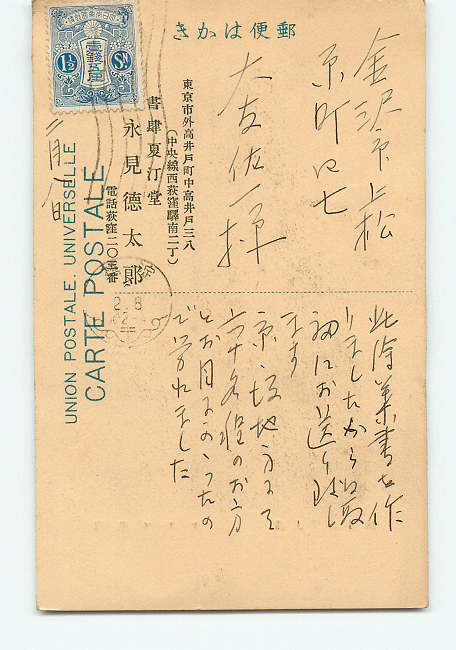 郵便はがき
金沢市上松
原町四七
大友佐一様
東京市外高井戸町中高井戸三八
(中央線西荻窪驛南二丁)
書肆夏汀堂
永見德太郎
電話荻窪二〇三番
二月八日
1½ Sn
壹錢五厘
UNION POSTALE UNIVERSELLE
CARTE POSTALE
2.8
此浮葉書を作
りましたから御
初にお送り致し
ます
京、坂地方にて
六十名程のお方
とお目にかゝったの
で労れました